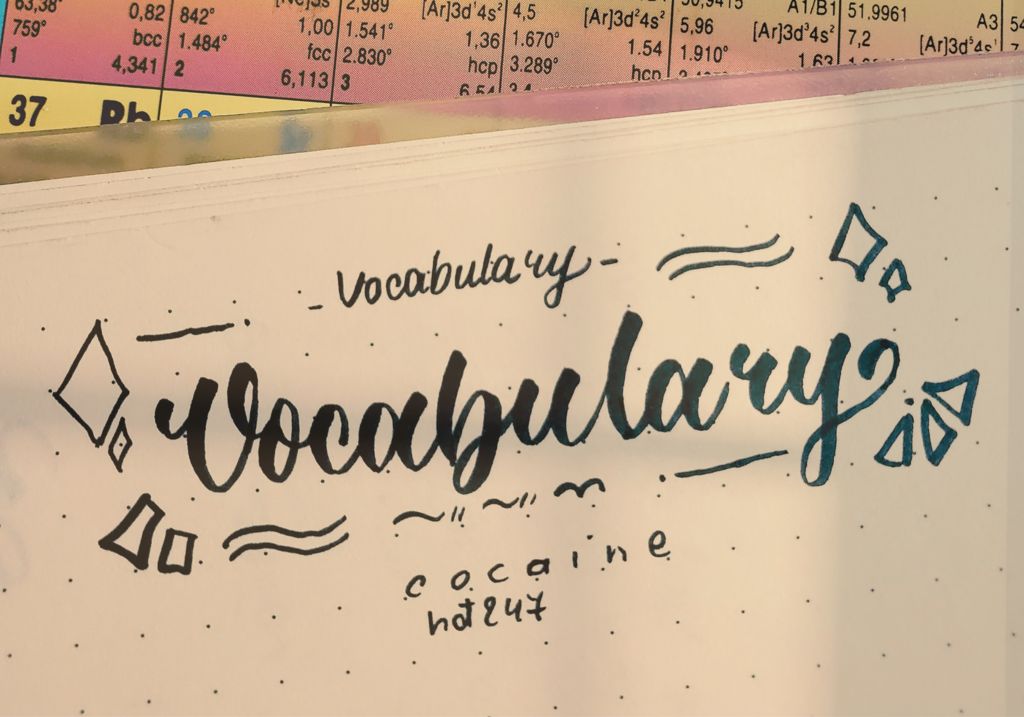 63,38°
0,82
842°
1,00
2,989
[Ar]3d¹4s²
4,5
[Ar]3d²4s²
50,9415
A1/B1
51.9961
A3
759°
bcc
1.484°
fcc
1.541°
1,36
1.670°
1.54
5,96
[Ar]3d³4s²
7,2
[Ar]3d⁵4s¹
1
4,341
2
6,113
3
2.830°
hcp
3.289°
hcp
1.910°
1,63
6,54
37
Rb
- Vocabulary -
Vocabulary
cocaine
not247